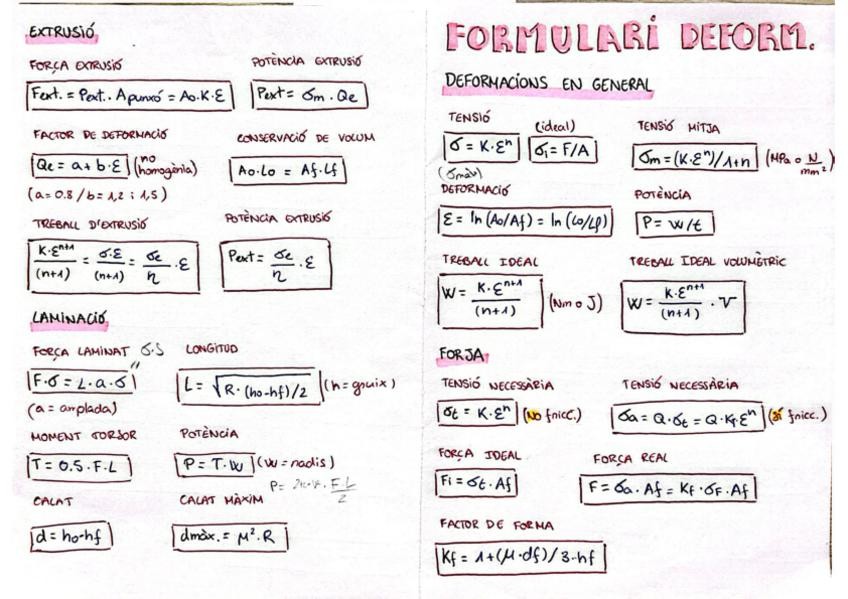 EXTRUSIÓ
FORÇA EXTRUSIÓ
Fext. = Pext. · Apunxó = Ao·K·Ɛ
POTÈNCIA EXTRUSIÓ
Pext = σm · Qe
FACTOR DE DEFORMACIÓ
Qe = a + b·Ɛ (no homogènia)
(a = 0.8 / b = 1,2 i 1,5)
CONSERVACIÓ DE VOLUM
Ao·Lo = Af·Lf
TREBALL D'EXTRUSIÓ
K·Ɛⁿ⁺¹/(n+1) = σ·Ɛ/(n+1) = σe/η · Ɛ
POTÈNCIA EXTRUSIÓ
Pext = σe/η · Ɛ
LAMINACIÓ
FORÇA LAMINAT σ·S
F·σ = L·a·σ
(a = amplada)
LONGITUD
L = √R·(ho-hf)/2 (h = gruix)
MOMENT TORSOR
T = 0.5·F·L
POTÈNCIA
P = T·W (W = rad/s)
CALAT
d = ho-hf
CALAT MÀXIM
dmàx. = μ²·R
FORMULARI DEFORM.
DEFORMACIONS EN GENERAL
TENSIÓ
σ = K·Ɛⁿ
(σmàx)
(ideal)
σi = F/A
TENSIÓ MITJA
σm = (K·Ɛⁿ)/1+n (MPa o N/mm²)
DEFORMACIÓ
Ɛ = ln(Ao/Af) = ln(Lo/Lf)
POTÈNCIA
P = W/t
TREBALL IDEAL
W = K·Ɛⁿ⁺¹/(n+1) (Nm o J)
TREBALL IDEAL VOLUMÈTRIC
W = K·Ɛⁿ⁺¹/(n+1) · V
FORJA
TENSIÓ NECESSÀRIA
σt = K·Ɛⁿ (NO fricc.)
TENSIÓ NECESSÀRIA
σa = Q·σt = Q·Kf·Ɛⁿ (SÍ fricc.)
FORÇA IDEAL
Fi = σt·Af
FORÇA REAL
F = σa·Af = Kf·σF·Af
FACTOR DE FORMA
Kf = 1+(μ·df)/3·hf